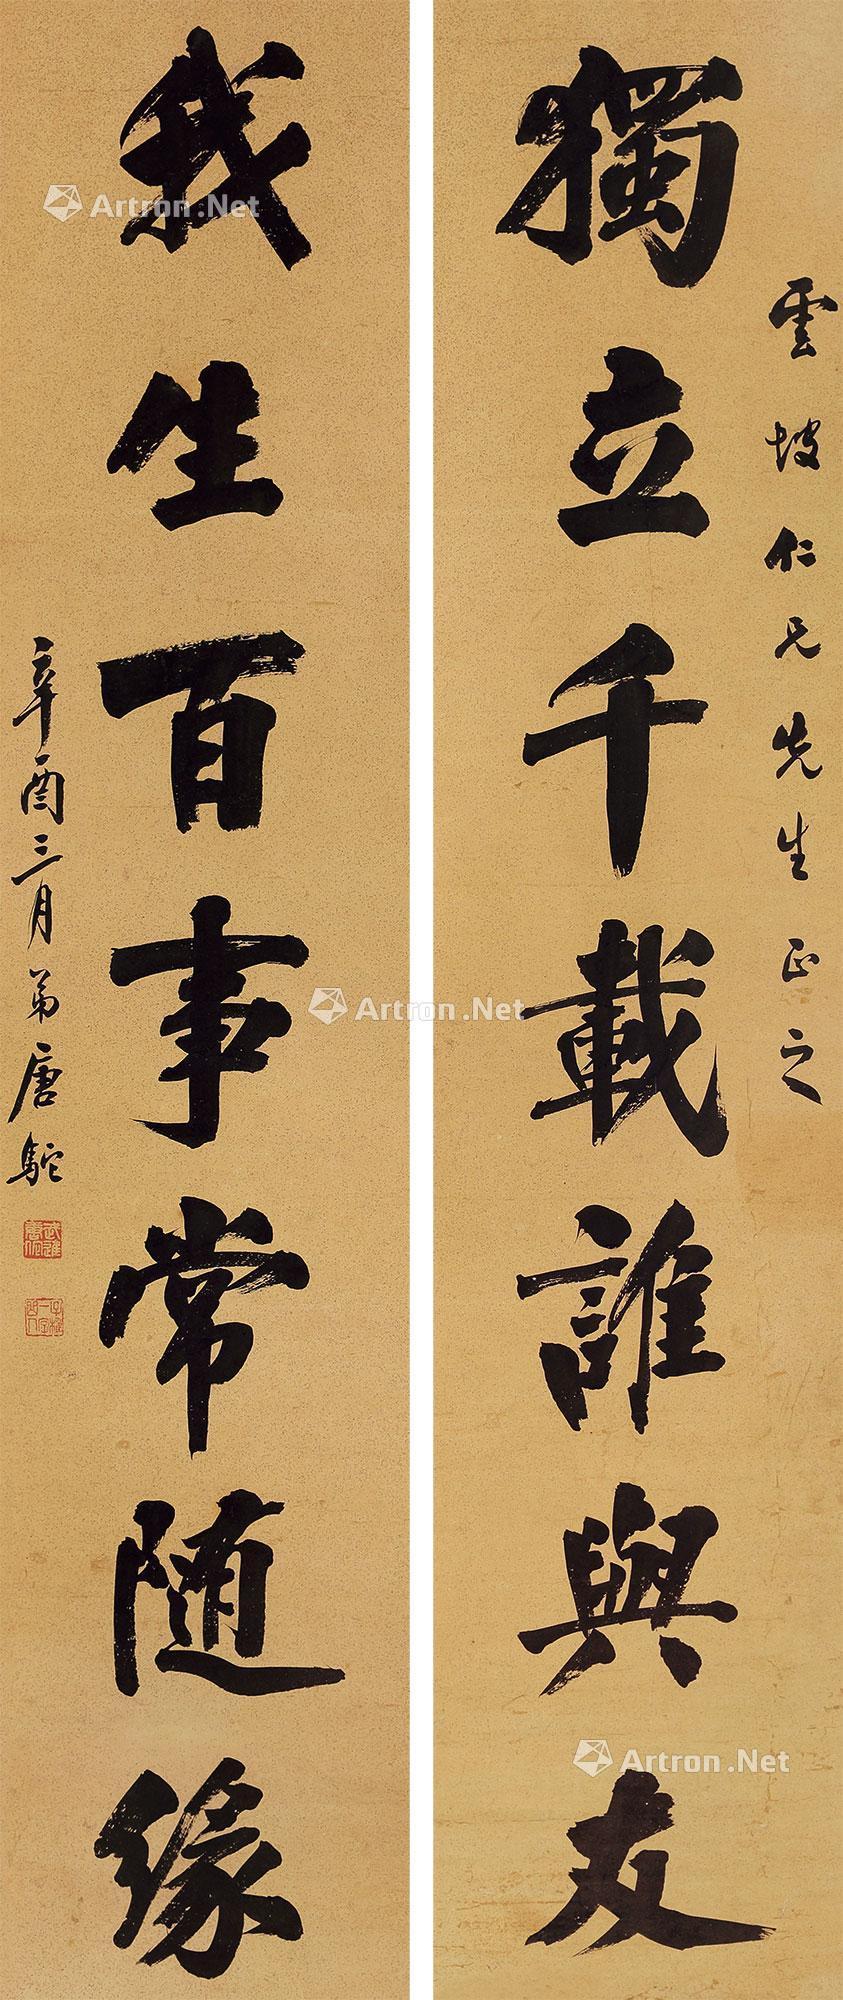 雲坡仁兄先生正之
獨立千載誰與友
我生百事常随缘
辛酉三月弟唐駝
Artron.Net
Artron.Net
Artron.Net